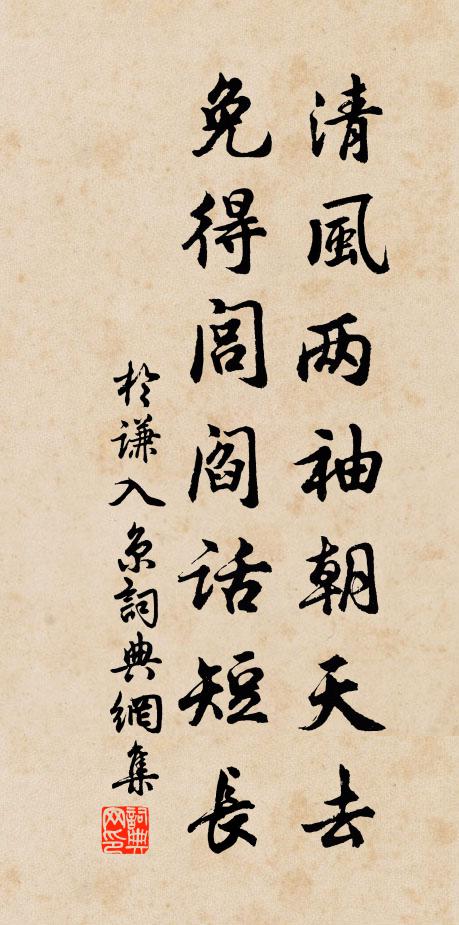 清風两袖朝天去
免得閭閻話短長
於謙入京詞典網集
詞典
网印